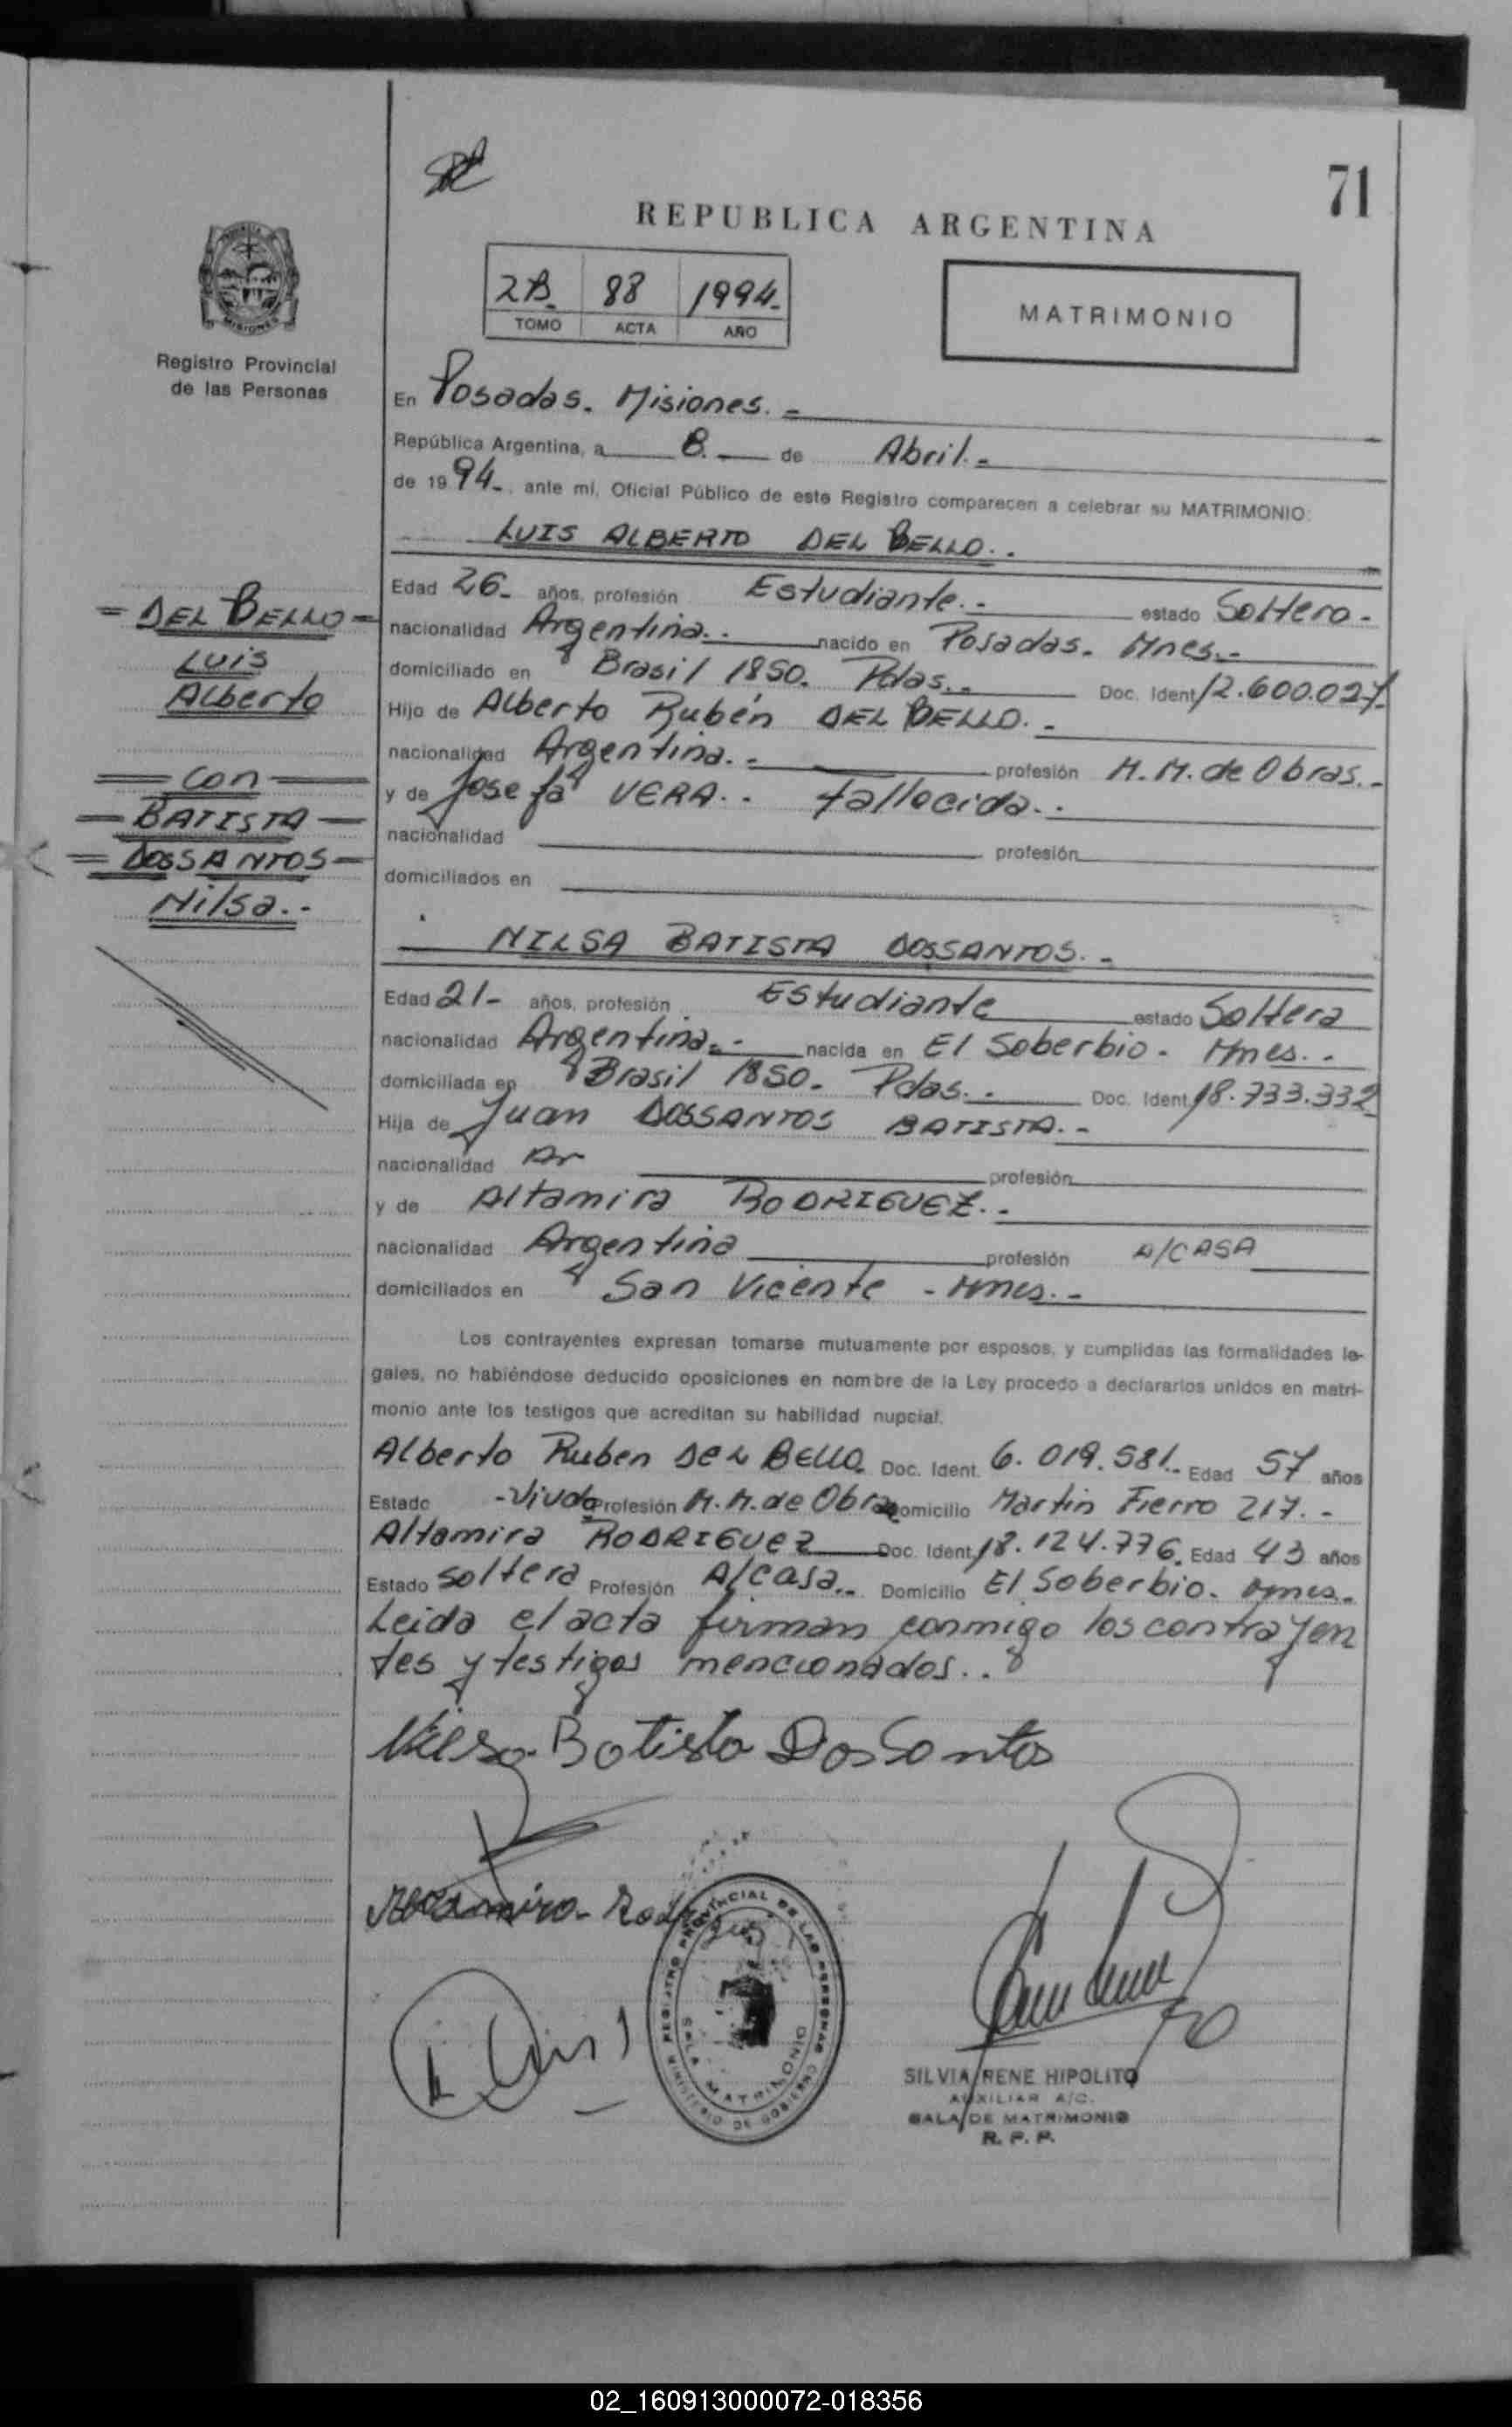 71
REPUBLICA ARGENTINA
2B. 88 1994.-
TOMO ACTA AÑO
MATRIMONIO
MISIONES
Registro Provincial
de las Personas
En Posadas. Misiones. -
República Argentina, a 8. de Abril.-
de 1994-, ante mí, Oficial Público de este Registro comparecen a celebrar su MATRIMONIO:
LUIS ALBERTO DEL BELLO..
Edad 26- años, profesión Estudiante.- estado Soltero-
nacionalidad Argentina.. nacido en Posadas. Mnes.-
domiciliado en Brasil 1850. Pdas.- Doc. Ident. 12.600.027-
Hijo de Alberto Rubén DEL BELLO. -
nacionalidad Argentina. - profesión M.M. de Obras.-
y de Josefa VERA.. fallecida..
nacionalidad profesión
domiciliados en
= DEL BELLO =
Luis
Alberto
= con =
= BATISTA =
= DOSSANTOS =
Nilsa..
NILSA BATISTA DOSSANTOS. -
Edad 21- años, profesión Estudiante estado Soltera
nacionalidad Argentina.- nacida en El Soberbio. Mnes..
domiciliada en Brasil 1850. Pdas.. Doc. Ident. 18.733.332
Hija de Juan DOSSANTOS BATISTA.-
nacionalidad Ar profesión
y de Altamira RODRIGUEZ..
nacionalidad Argentina profesión A/CASA
domiciliados en San Vicente - Mnes.-
Los contrayentes expresan tomarse mutuamente por esposos, y cumplidas las formalidades le-
gales, no habiéndose deducido oposiciones en nombre de la Ley procedo a declararlos unidos en matri-
monio ante los testigos que acreditan su habilidad nupcial.
Alberto Ruben DEL BELLO. Doc. Ident. 6.019.581.- Edad 57 años
Estado -Viudo Profesión M.M. de Obra Domicilio Martin Fierro 217.-
Altamira RODRIGUEZ Doc. Ident. 18.124.776. Edad 43 años
Estado soltera Profesión A/casa.. Domicilio El Soberbio. Mnes.
Leida el acta firman conmigo los contrayen
tes y testigos mencionados..
Nilsa Batista DosSantos
Altamira Rodriguez
REGISTRO PROVINCIAL DE LAS PERSONAS
MINISTERIO DE GOBIERNO
SALA MATRIMONIO
SILVIA RENE HIPOLITO
AUXILIAR A/C.
SALA DE MATRIMONIO
R. P. P.
02_160913000072-018356